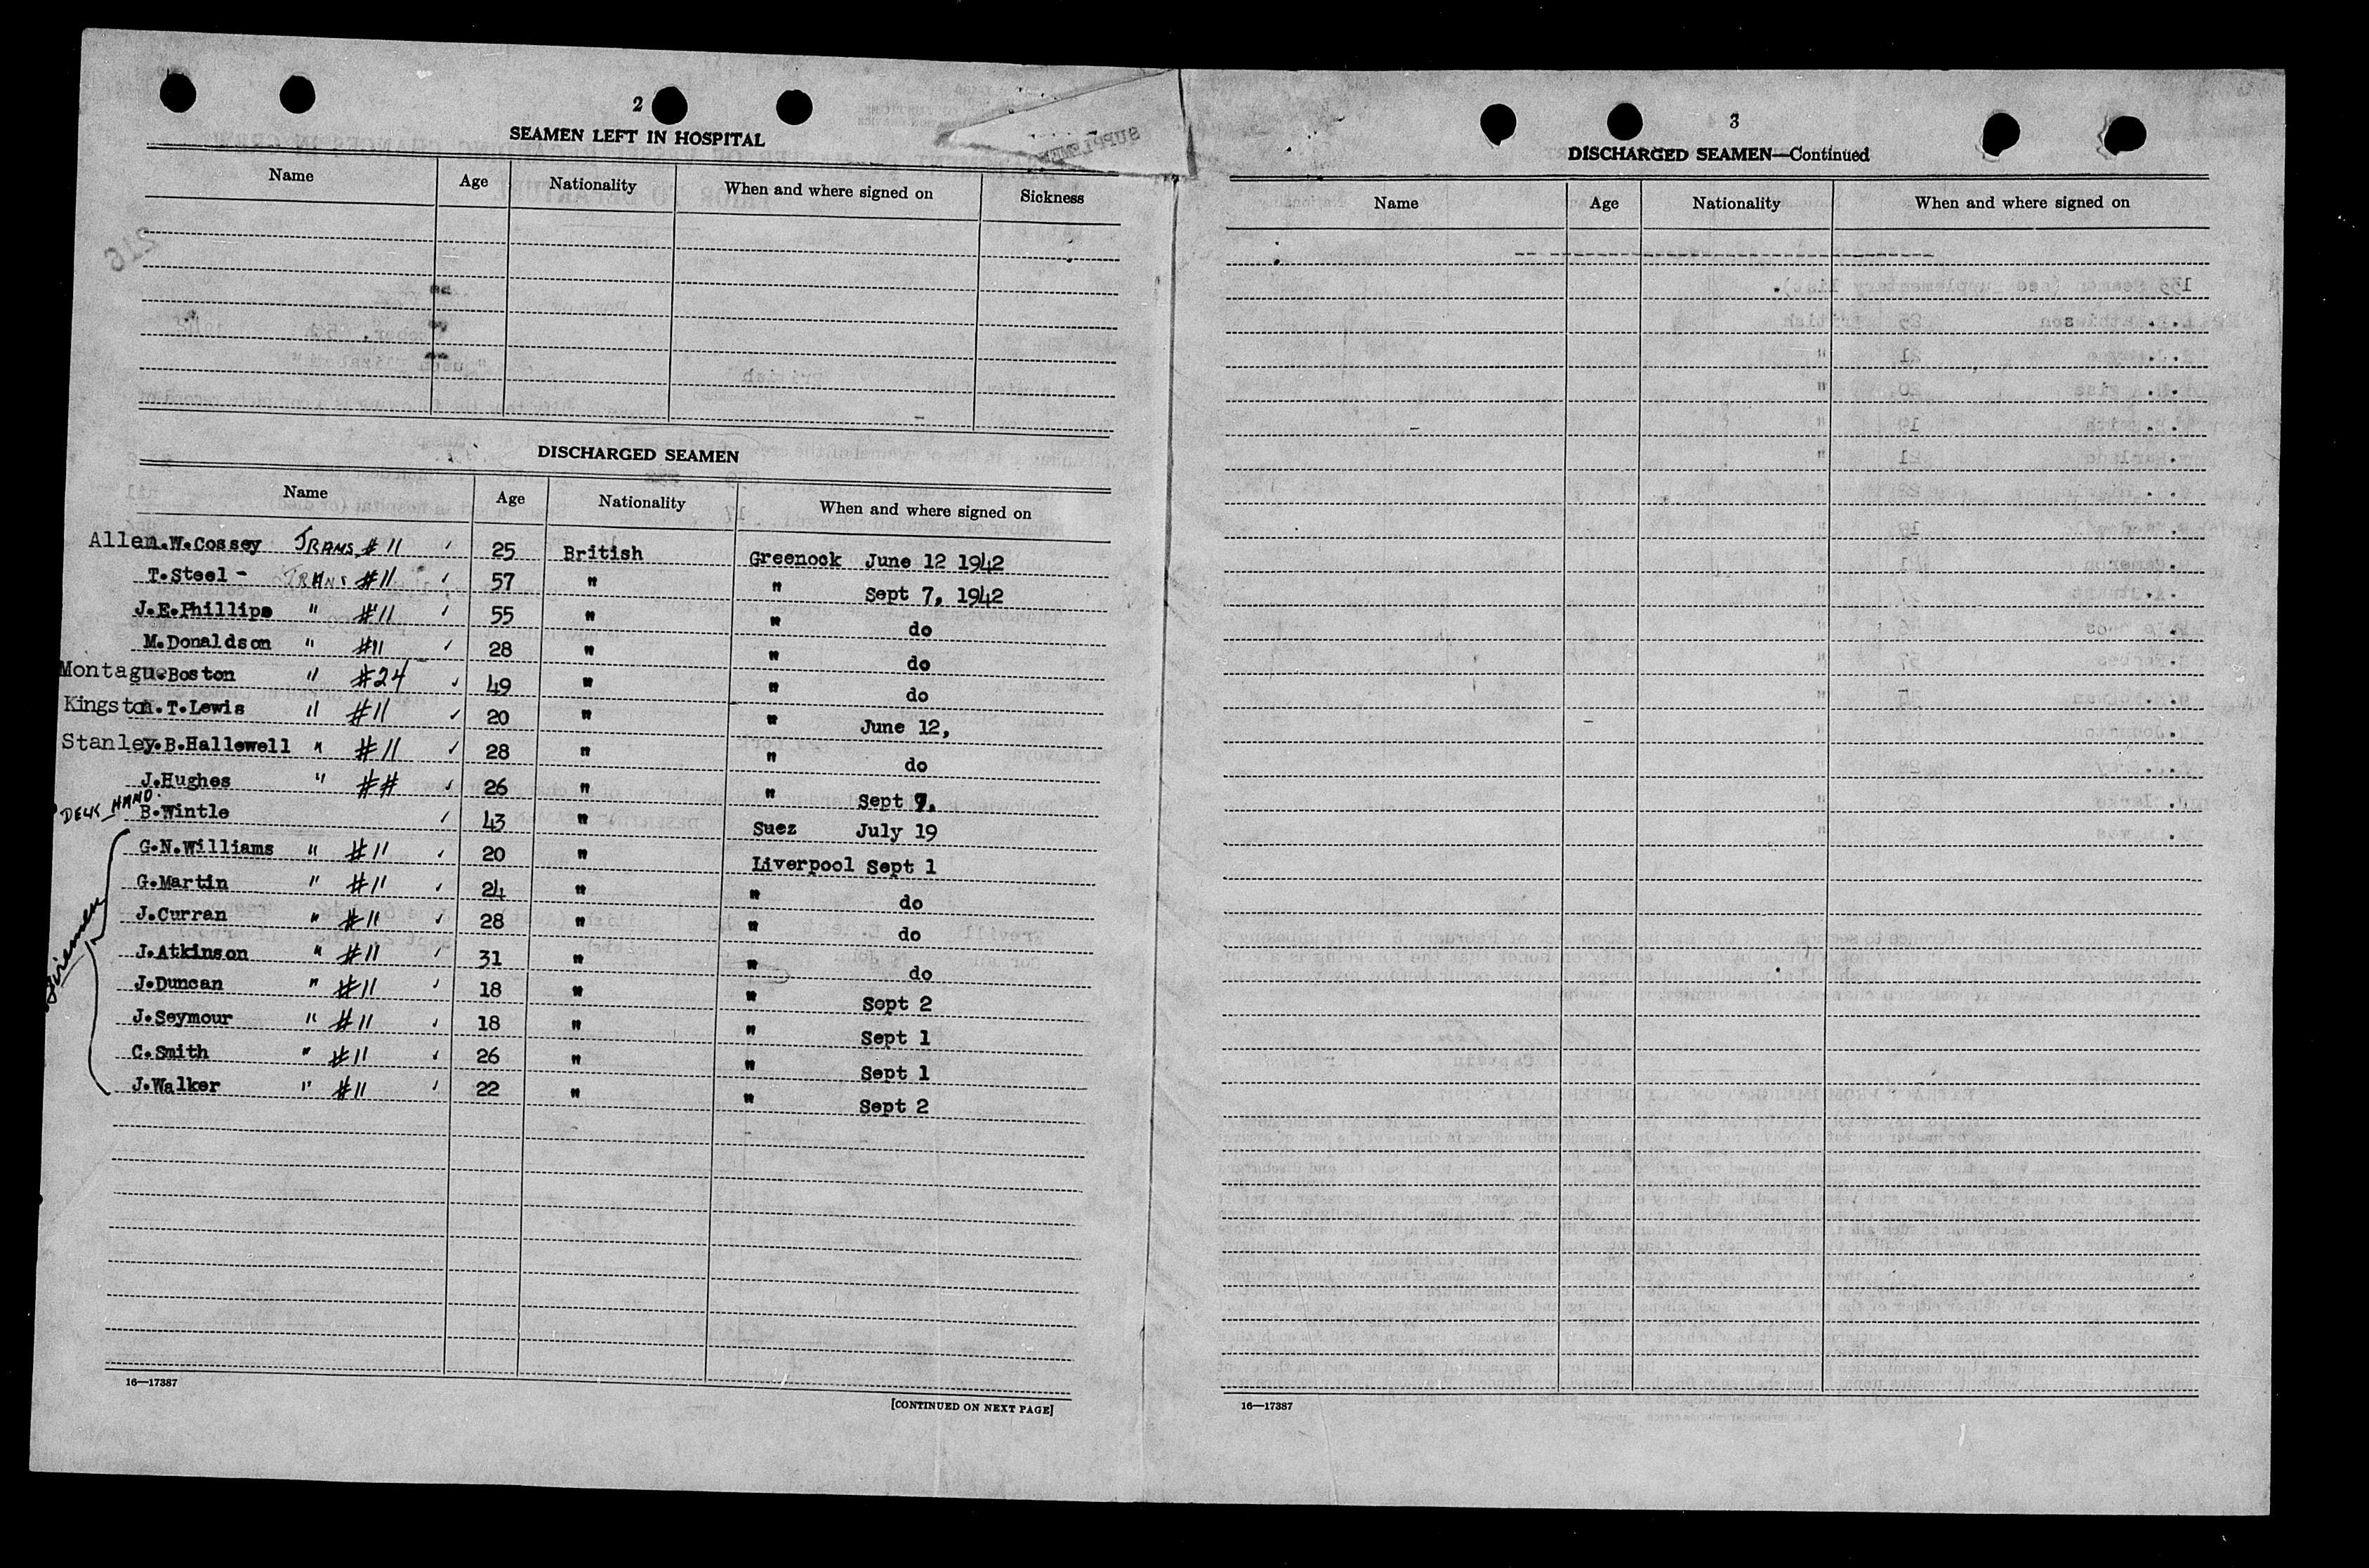 2
SEAMEN LEFT IN HOSPITAL
Name Age Nationality When and where signed on Sickness
DISCHARGED SEAMEN
Name Age Nationality When and where signed on
Allen.W.Cossey TRANS #11 ✓ 25 British Greenock June 12 1942
T.Steel - TRANS #11 ✓ 57 " " Sept 7, 1942
J.E.Phillips " #11 ✓ 55 " " do
M.Donaldson " #11 ✓ 28 " " do
Montague Boston " #24 ✓ 49 " " do
Kingston.T.Lewis " #11 ✓ 20 " " June 12,
Stanley.B.Hallewell " #11 ✓ 28 " " do
J.Hughes " ## ✓ 26 " " Sept 7,
DECK HAND. B.Wintle ✓ 43 " Suez July 19
Firemen
G.N.Williams " #11 ✓ 20 " Liverpool Sept 1
G.Martin " #11 ✓ 24 " " do
J.Curran " #11 ✓ 28 " " do
J.Atkinson " #11 ✓ 31 " " do
J.Duncan " #11 ✓ 18 " " Sept 2
J.Seymour " #11 ✓ 18 " " Sept 1
C.Smith " #11 ✓ 26 " " Sept 1
J.Walker " #11 ✓ 22 " " Sept 2
16—17387
[CONTINUED ON NEXT PAGE]
3
DISCHARGED SEAMEN—Continued
Name Age Nationality When and where signed on
16—17387